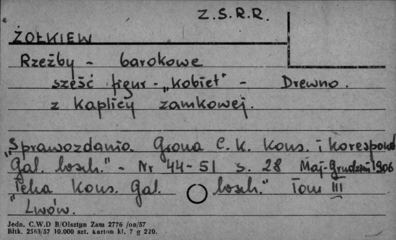 Z.S.R.R.
ŻOŁKIEW
Rzeźby - barokowe
sześć figur - „kobiet" - Drewno.
z kaplicy zamkowej.
„Sprawozdania Grona C.K. Kons. i korespond
Gal. wsch." - Nr 44-51 s. 28 Maj-Grudzień 1906
Teka Kons. Gal. wsch." Tom III
Lwów.
Jedn. C.W.D B/Olsztyn Zam 2776 /on/57
Bltk. 2563/57 10.000 szt. karton kl. 7 g 220.